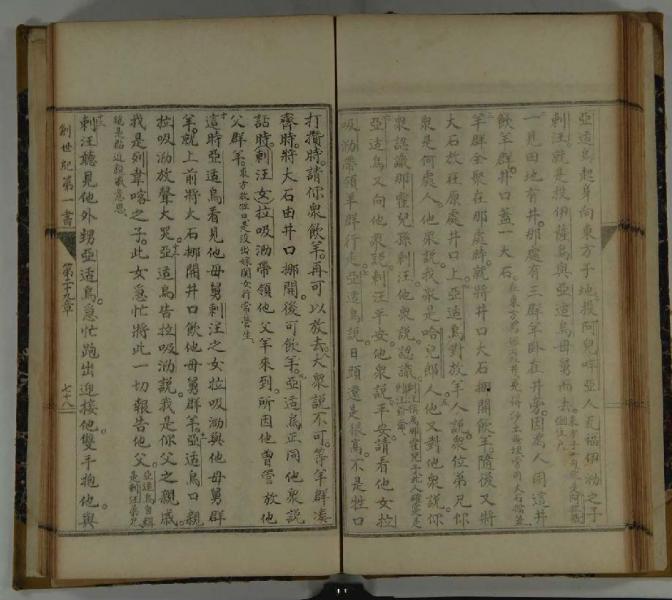 亞适烏起身向東方子地投阿兒畔亞人
剌汪就是投伊薩烏與亞适烏母舅而去
一見田地有井那處有三群羊臥在井旁因衆人用這井
飲羊群井口蓋一大石
羊群全聚在那處時就將井口大石挪開飲羊隨後又將
大石放在原處井口上亞适烏對放羊人說衆位弟兄你
衆是何處人他衆說我衆是哈兒郎人他又對他衆說你
衆認識那霍兒孫剌汪他衆說認識
亞适烏又向他衆說剌汪平安他衆說平安請看他女拉
吸泐帶領羊群行走亞适烏說日頭還是很高不是牲口
打攢時請你衆飲羊再可以放去大衆說不可等羊群湊
齊時將大石由井口挪開後可飲羊亞适烏正同他衆說
話時剌汪女拉吸泐帶領他父羊來到所因他曾管放他
父群羊
這時亞适烏看見他母舅剌汪之女拉吸泐與他母舅群
羊就上前將大石挪開井口飲他母舅群羊亞适烏口親
拉吸泐放聲大哭亞适烏告拉吸泐說我是你父之親戚
我是列韋喀之子此女急忙將此一切報告他父
剌汪聽見他外甥亞适烏急忙跑出迎接他雙手抱他與
創世紀第一書 第二十九章 七十八